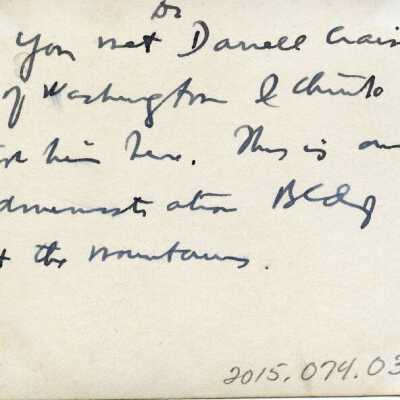 Dr
You met Darrell Crain
of Washington I think
him here. This is our
administration Bldg
the mountains.
2015.074.03